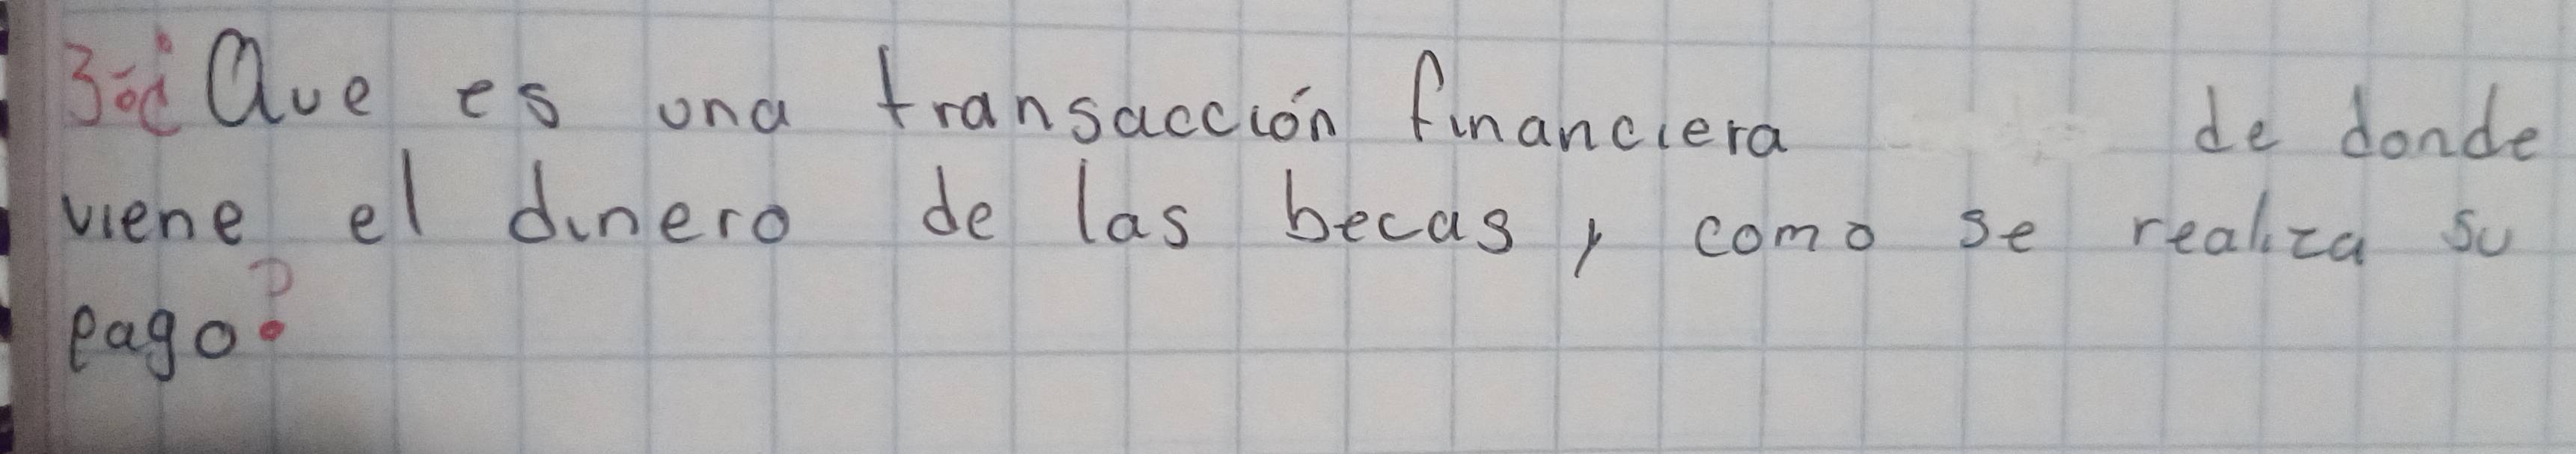 3-¿Que es una transacción financiera de donde
viene el dinero de las becas, como se realiza su
pago?